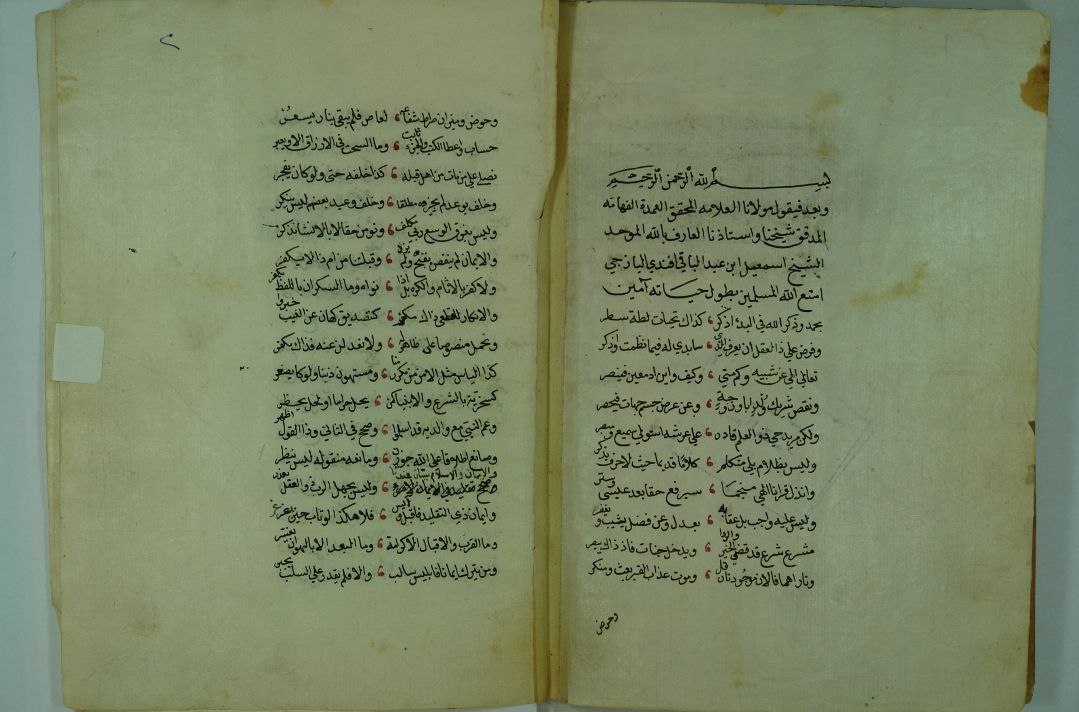 بسم الله الرحمن الرحيم
وبعد فيقول مولانا العلامه المحقق العمدة الفهامه
المدقق شيخنا واستاذنا العارف بالله الموحد
الشيخ اسمعيل ابن عبد الباقي افندي اليازجي
امتع الله المسلمين بطول حياته آمين
بحمد وذكر الله في البدء اذكر كذاك تحيات لطه تسطر
وفرض على ذا العقل ان يعرف الذي سابدي له فيما نظمت واذكر
تعالى الهي عن شبيه وكم متي وكيف واين ادمعين فيبصر
ونقص شريك والد او زوجة وعن عرض جسم جهات فيحصر
ولكن مريد حي ذو العلم قادر على عرشه استولى سميع ومبصر
وليس بظلام بلى متكلم كلاما قديما حيث لا حرف يذكر
وانزل قرانا الهي منجما سيرفع حقا بعد عيسى وستر
وليس عليه واجب بل عقابه بعدل وعن فضل يثيب ويغفر
مشرع شرع قد قضى الخير والردا ويدخل جنات فاذ ذاك يبصر
ونار اهما فالان موجودتان قل وموت عذاب القبر بعث ومنكر
وحوض
وحوض وميزان صراط شفاعة لعاص فلم يبقى بنار يسعر
حساب واعطا الكتب ثابت وما السحت في الارزاق الا ويعبر
نصلي على من مات من اهل قبلة كذا خلفه حتى ولو كان يفجر
وخلف بوعد لم يجز مطلقا وخلف وعيد بعضهم ليس ينكر
وليس بفوق الوسع ربي مكلف ونومن مقالا بالا انشا نذكر
والايمان لم ينقص بفتح ولم يزد وقبلنا من ام ذا لا يكفر
ولا كفر بالاثام والكره بل اذا نواه وما السكران باللفظ يكفر
كتصديق كهان عن الغيب خبروا
ونحمل منصوصا على ظاهر ولا نعدلن عنه فذاك يكفر
كذا الياس مثل الامن من مكر ربنا ومستهون ذنبا ولو كان يصغر
كسخرية بالشرع والانبيا كمن يحل حراما او لحل يحظر
وعم النبي مع والديه قد اسلموا وصح في الثاني وذا القول اظهر
وصانع اطلاقا على الله جوزن وما نعه منقوله ليس ينظر
والايمان والاسلام سيان عندنا
وليس بجهل الرب ذو العقل يعذر
وايمان ذي التقليد فاقبل وليس فلا هكذا الوتاب حين يغرغر
وما القرب والاقبال الا كرامة وما البعد الا بالهوان يفسر
ومن يترك ايمانا فابليس سالب والا فلم يقدر على السلب يحبر